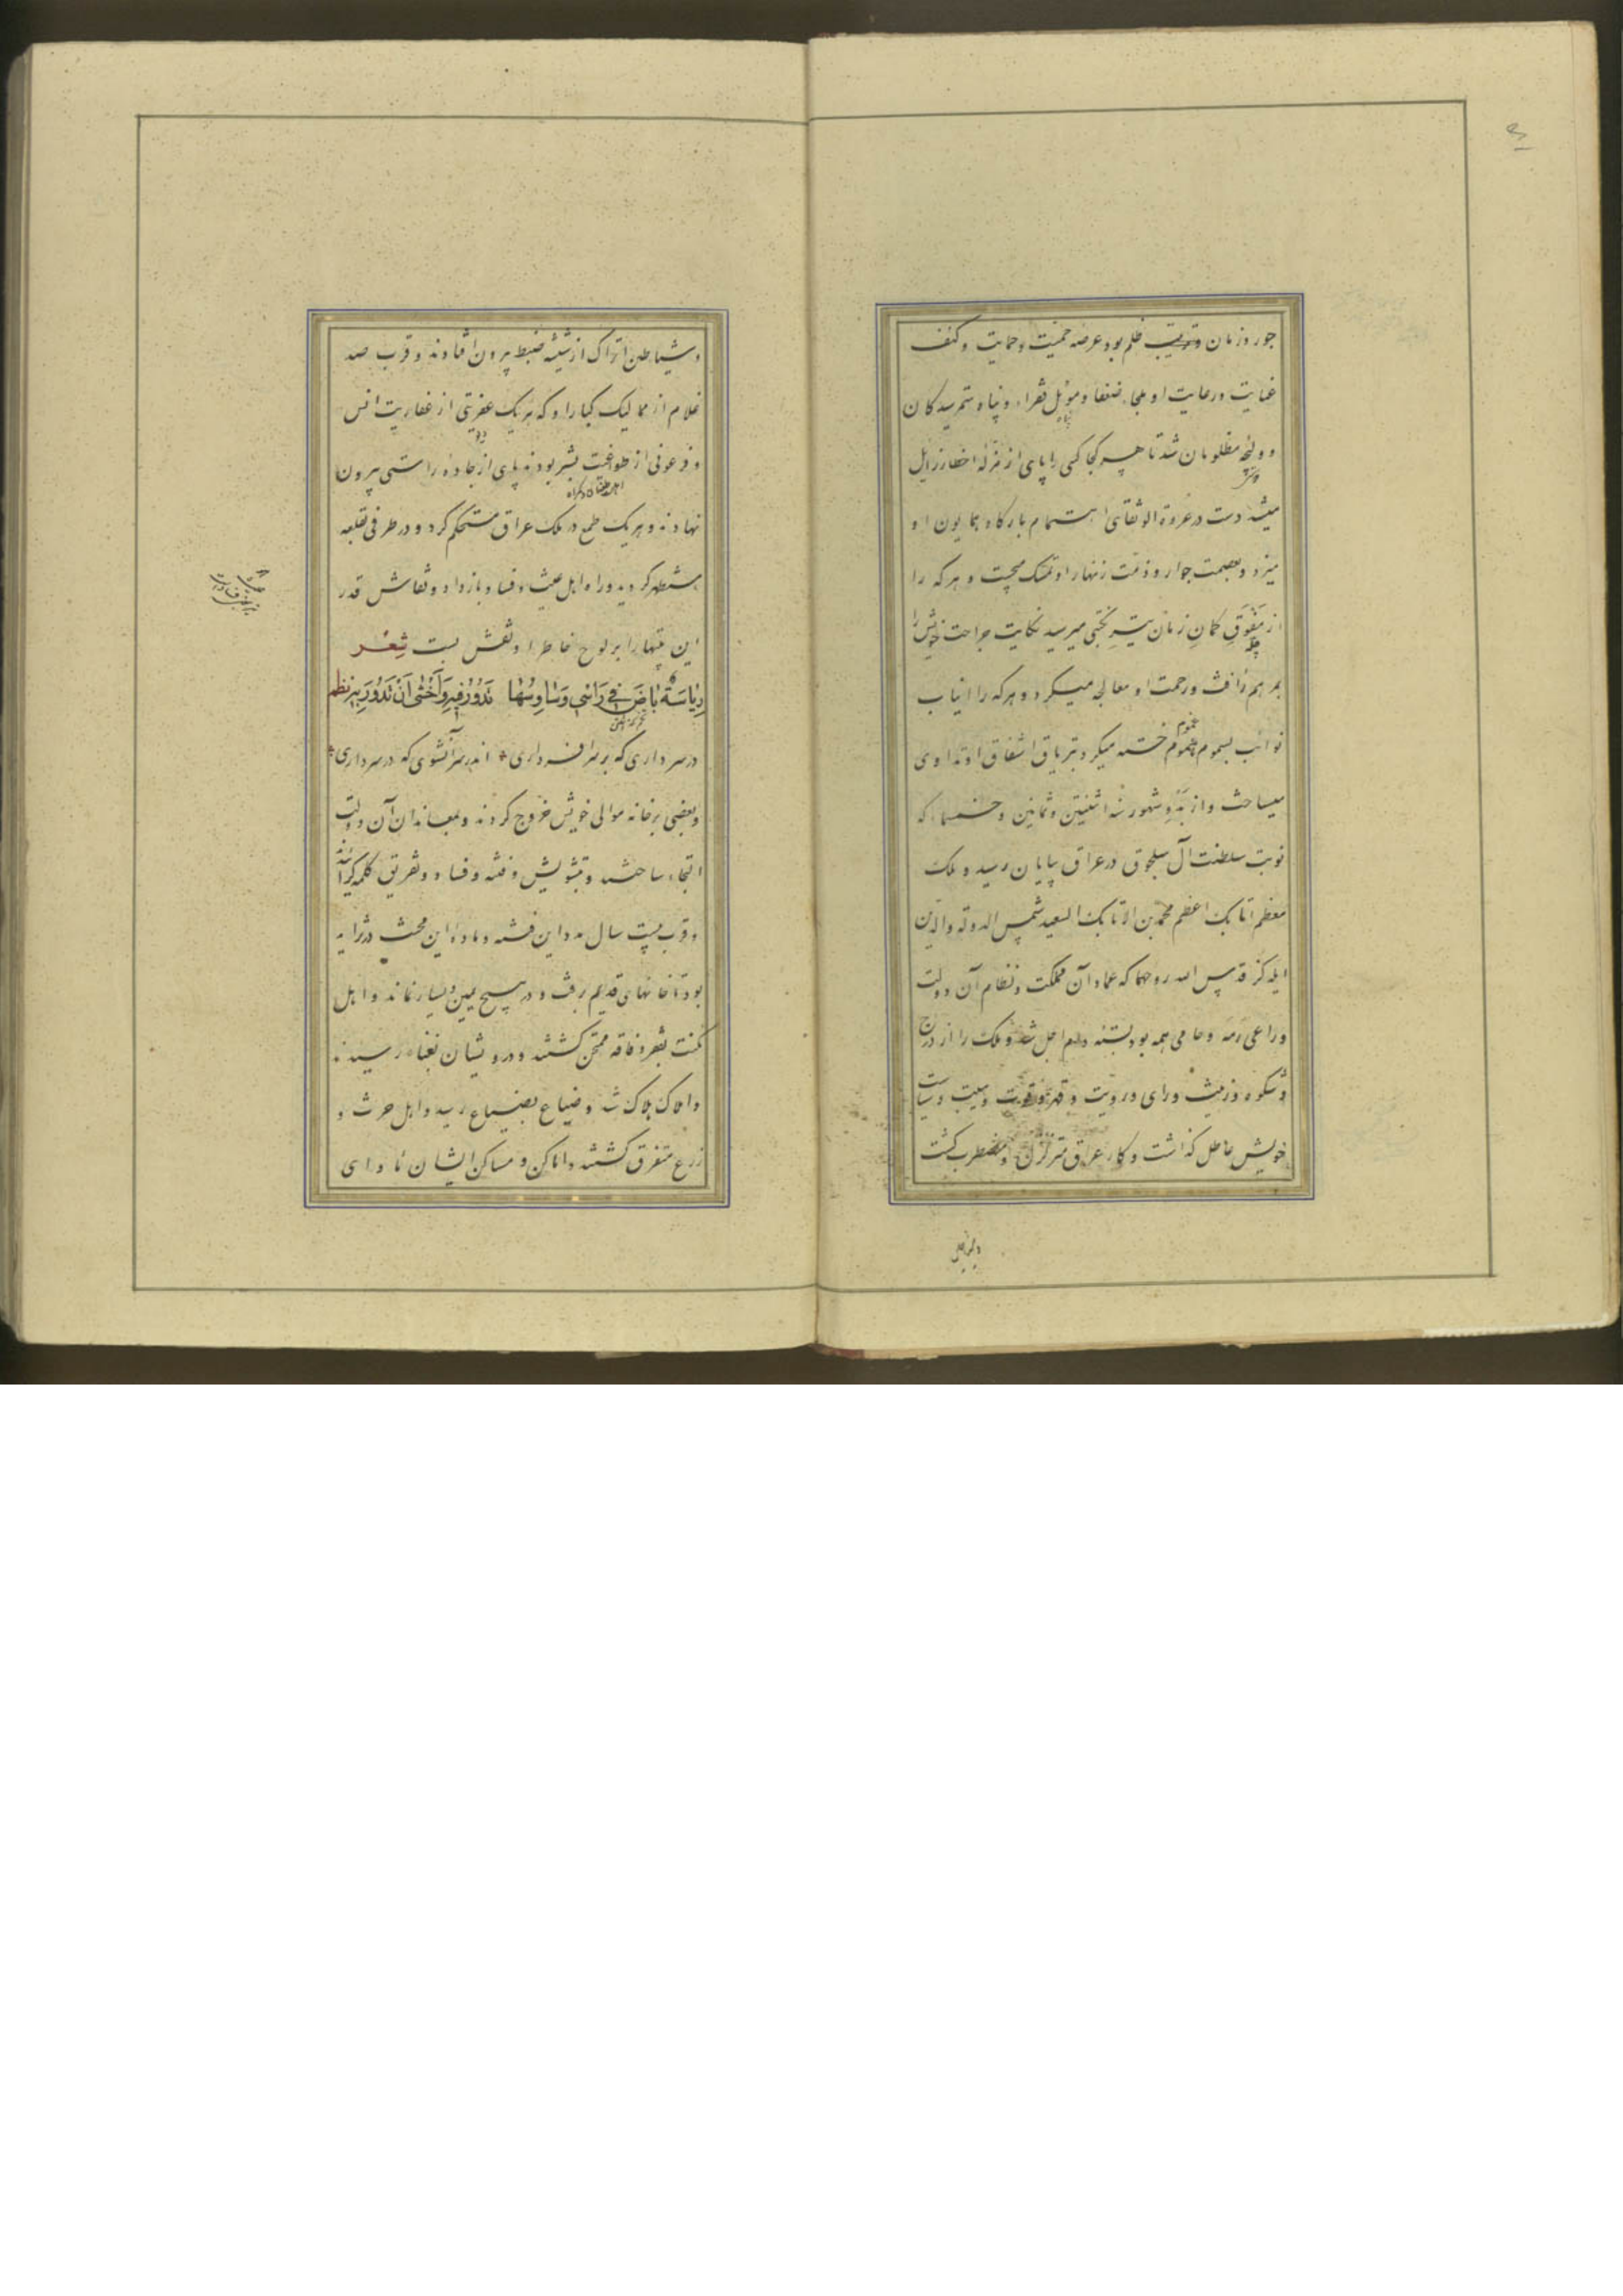 جور و زمان و ترتیب ظلم بود عرضه حمیت و حمایت و کنف
عنایت و رعایت او ملجاء ضعفا و موئل فقراء و پناه ستمرسیدکان
پناه
و ولیجه مظلومان شد تا هر کجا کسی را پای از منزله اخطار زایل
میشد دست در عروة الوثقای اهتمام بارکاه همایون او
میزد و بعصمت جوار و ذمت زنهار او تمسک میجست و هر که را
از مفوّق کمان زمان تیر نکبتی میرسید نکایت جراحت خویش را
بمرهم رأفت و رحمت او معالجه میکرد و هرکه را انیاب
نوائب بسموم غموم خسته میکرد بتریاق اشفاق او تداوی
میساخت و از بدو شهور سنه اثنتین و ثمانین و خمسماء که
نوبت سلطنت آل سلجوق در عراق بپایان رسید و ملک
معظم اتابک اعظم محمد بن الاتابک السعید شمس الدوله والدین
ایلدکز قدس الله روحهما که عماد آن مملکت و نظام آن دولت
و راعی رمه و حامی همه بود بسته دام اجل شد و ملک را از درج
و شکوه و زینت و رای و رویت و قهر و قوت و هیبت و سیاست
خویش عاطل کذاشت و کار عراق متزلزل و مضطرب کشت
و شیاطین
و شیاطین اتراک از شیشه ضبط بیرون افتادند و قرب صد
غلام از ممالیک کبار او که هر یک عفریتی از عفاریت انس
و فرعونی از طواغیت بشر بودند پای از جاده راستی بیرون
نهادند و هر یک طمع در ملک عراق مستحکم کرد و در طرفی قلعه
مستظهر کردید و را و اهل عیث و فساد باز داد و نقاش قدر
این بیتها را بر لوح خاطر او نقش بست شعر
ریاسة باض فی رأسی وساوسها تدور فیه واخشی ان تدور به نظم
در سر داری که بر سر افسر داری اندر سر آن شوی که در سر داری
و بعضی بر خانه موالی خویش خروج کردند و بمعاندان آن دولت
التجاء ساختند و بتشویش و فتنه و فساد و تفریق کلمه کرائیدند
و قرب بیست سال مدد این فتنه و ماده این محنت در تزاید
بود تا خانهای قدیم برفت و در هیچ یمین و یسار نماند و اهل
مکنت بفقر و فاقه ممتحن کشتند و درویشان بغناء رسیدند
و املاک هلاک شد و ضیاع بضیاع رسید و اهل حرث و
زرع متفرق کشتند و اماکن و مساکن ایشان مأوای